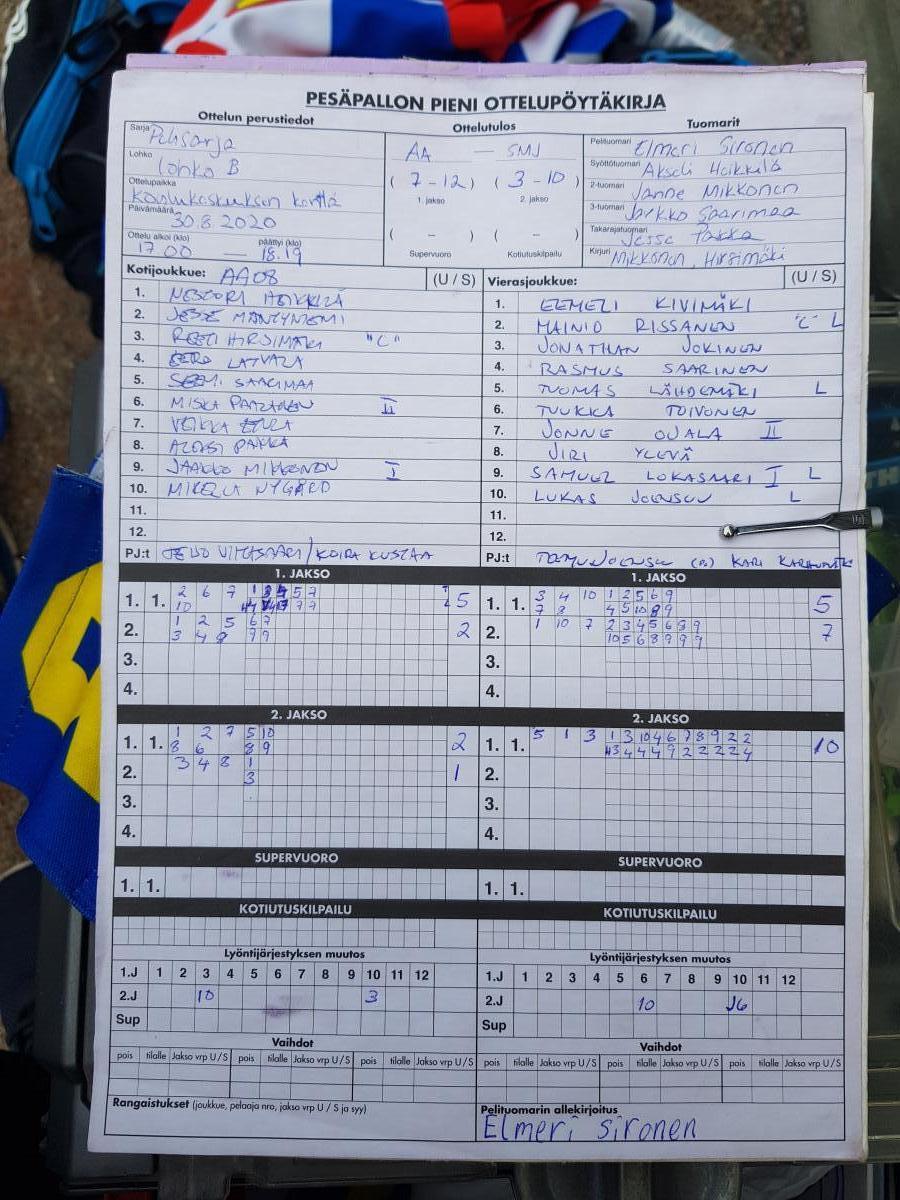 PESÄPALLON PIENI OTTELUPÖYTÄKIRJA
Ottelun perustiedot
Sarja
Lohko Lohko B
Ottelupaikka Koulukeskuksen kenttä
Päivämäärä 30.8.2020
Ottelu alkoi (klo) päättyi (klo)
17.00 — 18.19
Ottelutulos
AA — SMJ
( 7 - 12 ) ( 3 - 10 )
1. jakso 2. jakso
( - ) ( - )
Supervuoro Kotiutuskilpailu
Tuomarit
Pelituomari Elmeri Sironen
Syöttötuomari Akseli Heikkilä
2-tuomari Janne Mikkonen
3-tuomari Jarkko Saarimaa
Takarajatuomari Jesse Pakka
Kirjuri Mikkonen, Hirsimäki
Kotijoukkue: AA08 (U / S)
1. HEIKKILÄ
2. MÄNTYNIEMI
3. HIRSIMÄKI "C"
4. EERO LATVALA
5. SAARIMAA
6. MISKA II
7. VEIKKA
8. PAKKA
9. JAAKKO MIKKONEN I
10. NYGÅRD
11.
12.
PJ:t / KOIRA KUSTAA
Vierasjoukkue: (U / S)
1. EEMELI KIVIMÄKI
2. MAINIO RISSANEN "C" L
3. JONATHAN JOKINEN
4. RASMUS SAARINEN
5. TUOMAS LÄHDEMÄKI L
6. TUUKKA TOIVONEN
7. JONNE OJALA II
8. JIRI YLEVÄ
9. SAMUEL LOKASAARI I L
10. LUKAS JOENSUU L
11.
12.
PJ:t JOENSUU KARI
1. JAKSO
1. 1. 2 6 7 5
10
2. 1 2 5 6 7 2
3 4 8 9 9
3.
4.
1. JAKSO
1. 1. 3 4 10 1 2 5 6 9 5
7 8 4 5 10 8 9
2. 1 10 7 2 3 4 5 6 8 9 7
10 5 6 8 9 9 9
3.
4.
2. JAKSO
1. 1. 1 2 7 5 10 2
8 6 8 9
2. 3 4 8 1 1
3
3.
4.
2. JAKSO
1. 1. 5 1 3 1 3 10 4 6 7 8 9 2 2 10
4 4 4 9 2 2 2 2 4
2.
3.
4.
SUPERVUORO
1. 1.
SUPERVUORO
1. 1.
KOTIUTUSKILPAILU
KOTIUTUSKILPAILU
Lyöntijärjestyksen muutos
1.J 1 2 3 4 5 6 7 8 9 10 11 12
2.J 10 3
Sup
Lyöntijärjestyksen muutos
1.J 1 2 3 4 5 6 7 8 9 10 11 12
2.J 10 6
Sup
Vaihdot
pois tilalle Jakso vrp U / S pois tilalle Jakso vrp U / S pois tilalle Jakso vrp U / S
Vaihdot
pois tilalle Jakso vrp U / S pois tilalle Jakso vrp U / S pois tilalle Jakso vrp U / S
Rangaistukset (joukkue, pelaaja nro, jakso vrp U / S ja syy)
Pelituomarin allekirjoitus
Elmeri sironen